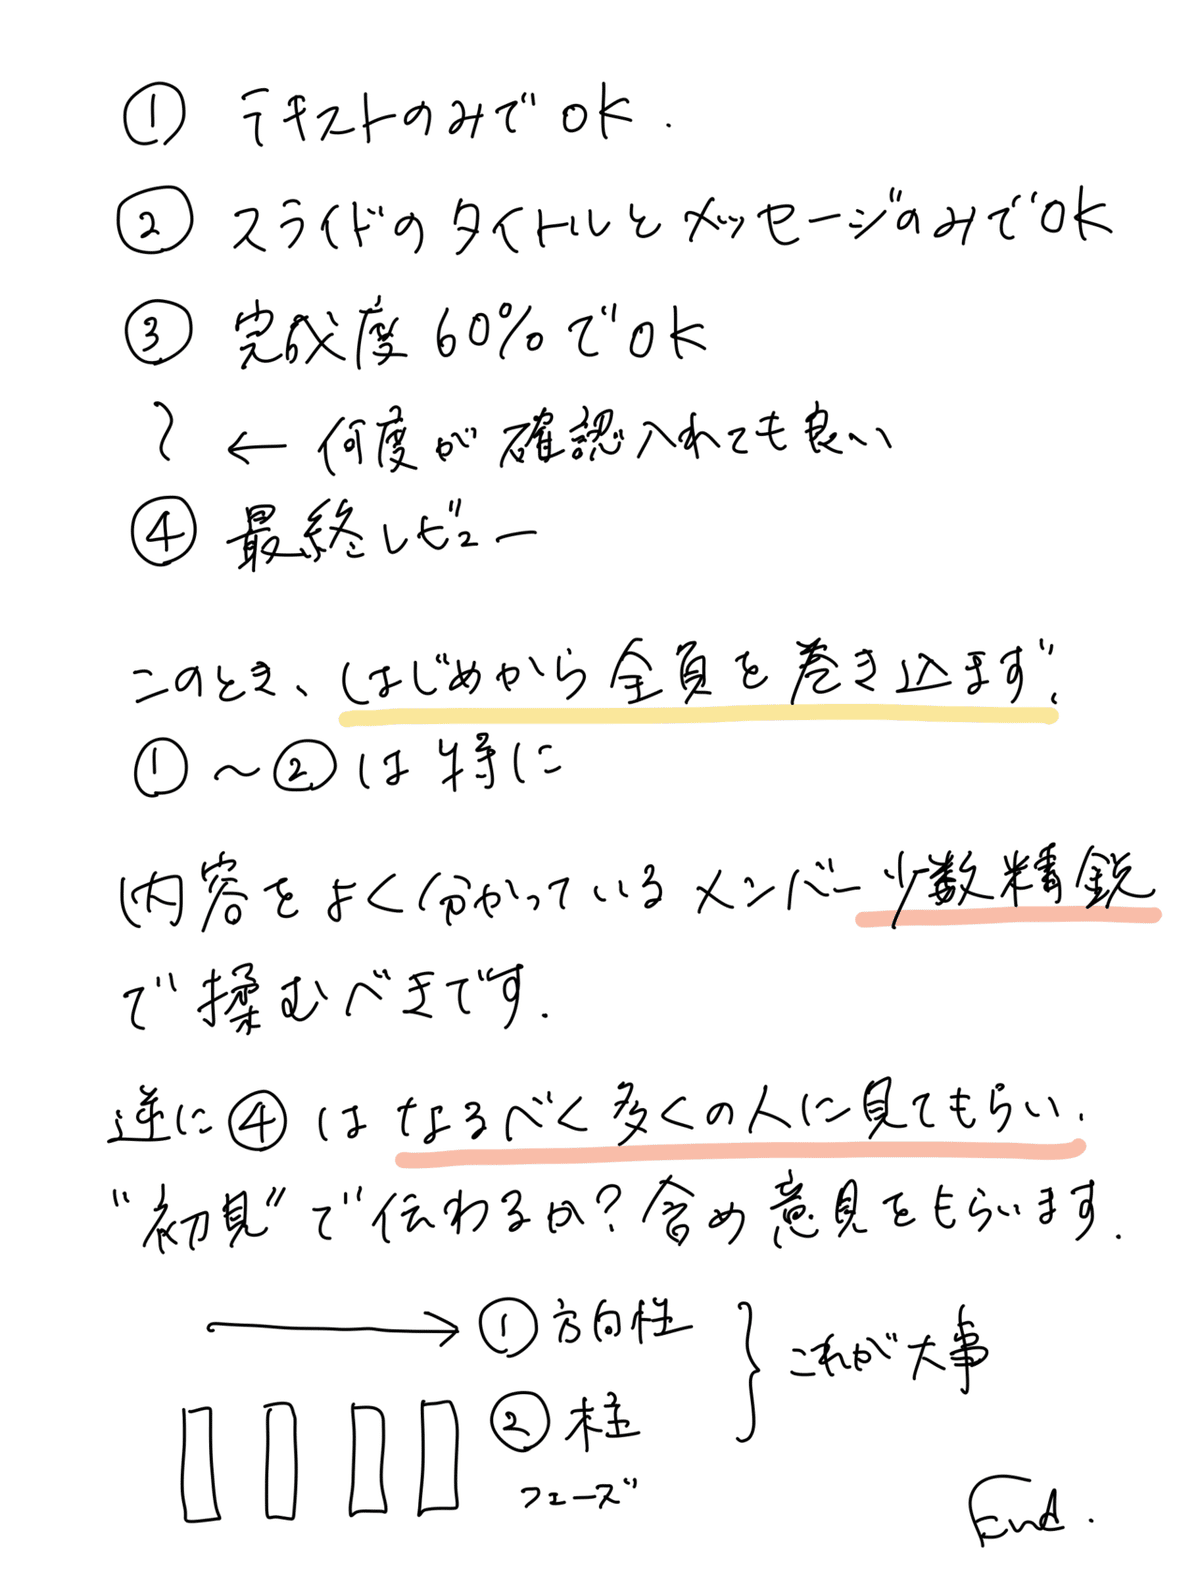 ① テキストのみでOK.
② スライドのタイトルとメッセージのみでOK
③ 完成度60%でOK
〜 ← 何度が確認入れても良い
④ 最終レビュー
このとき、はじめから全員を巻き込まず、
①〜②は特に
内容をよく分かっているメンバー少数精鋭
で揉むべきです.
逆に④はなるべく多くの人に見てもらい、
"初見"で伝わるか?含め意見をもらいます.
→ ①方向性
②柱
フェーズ
} これが大事
End.